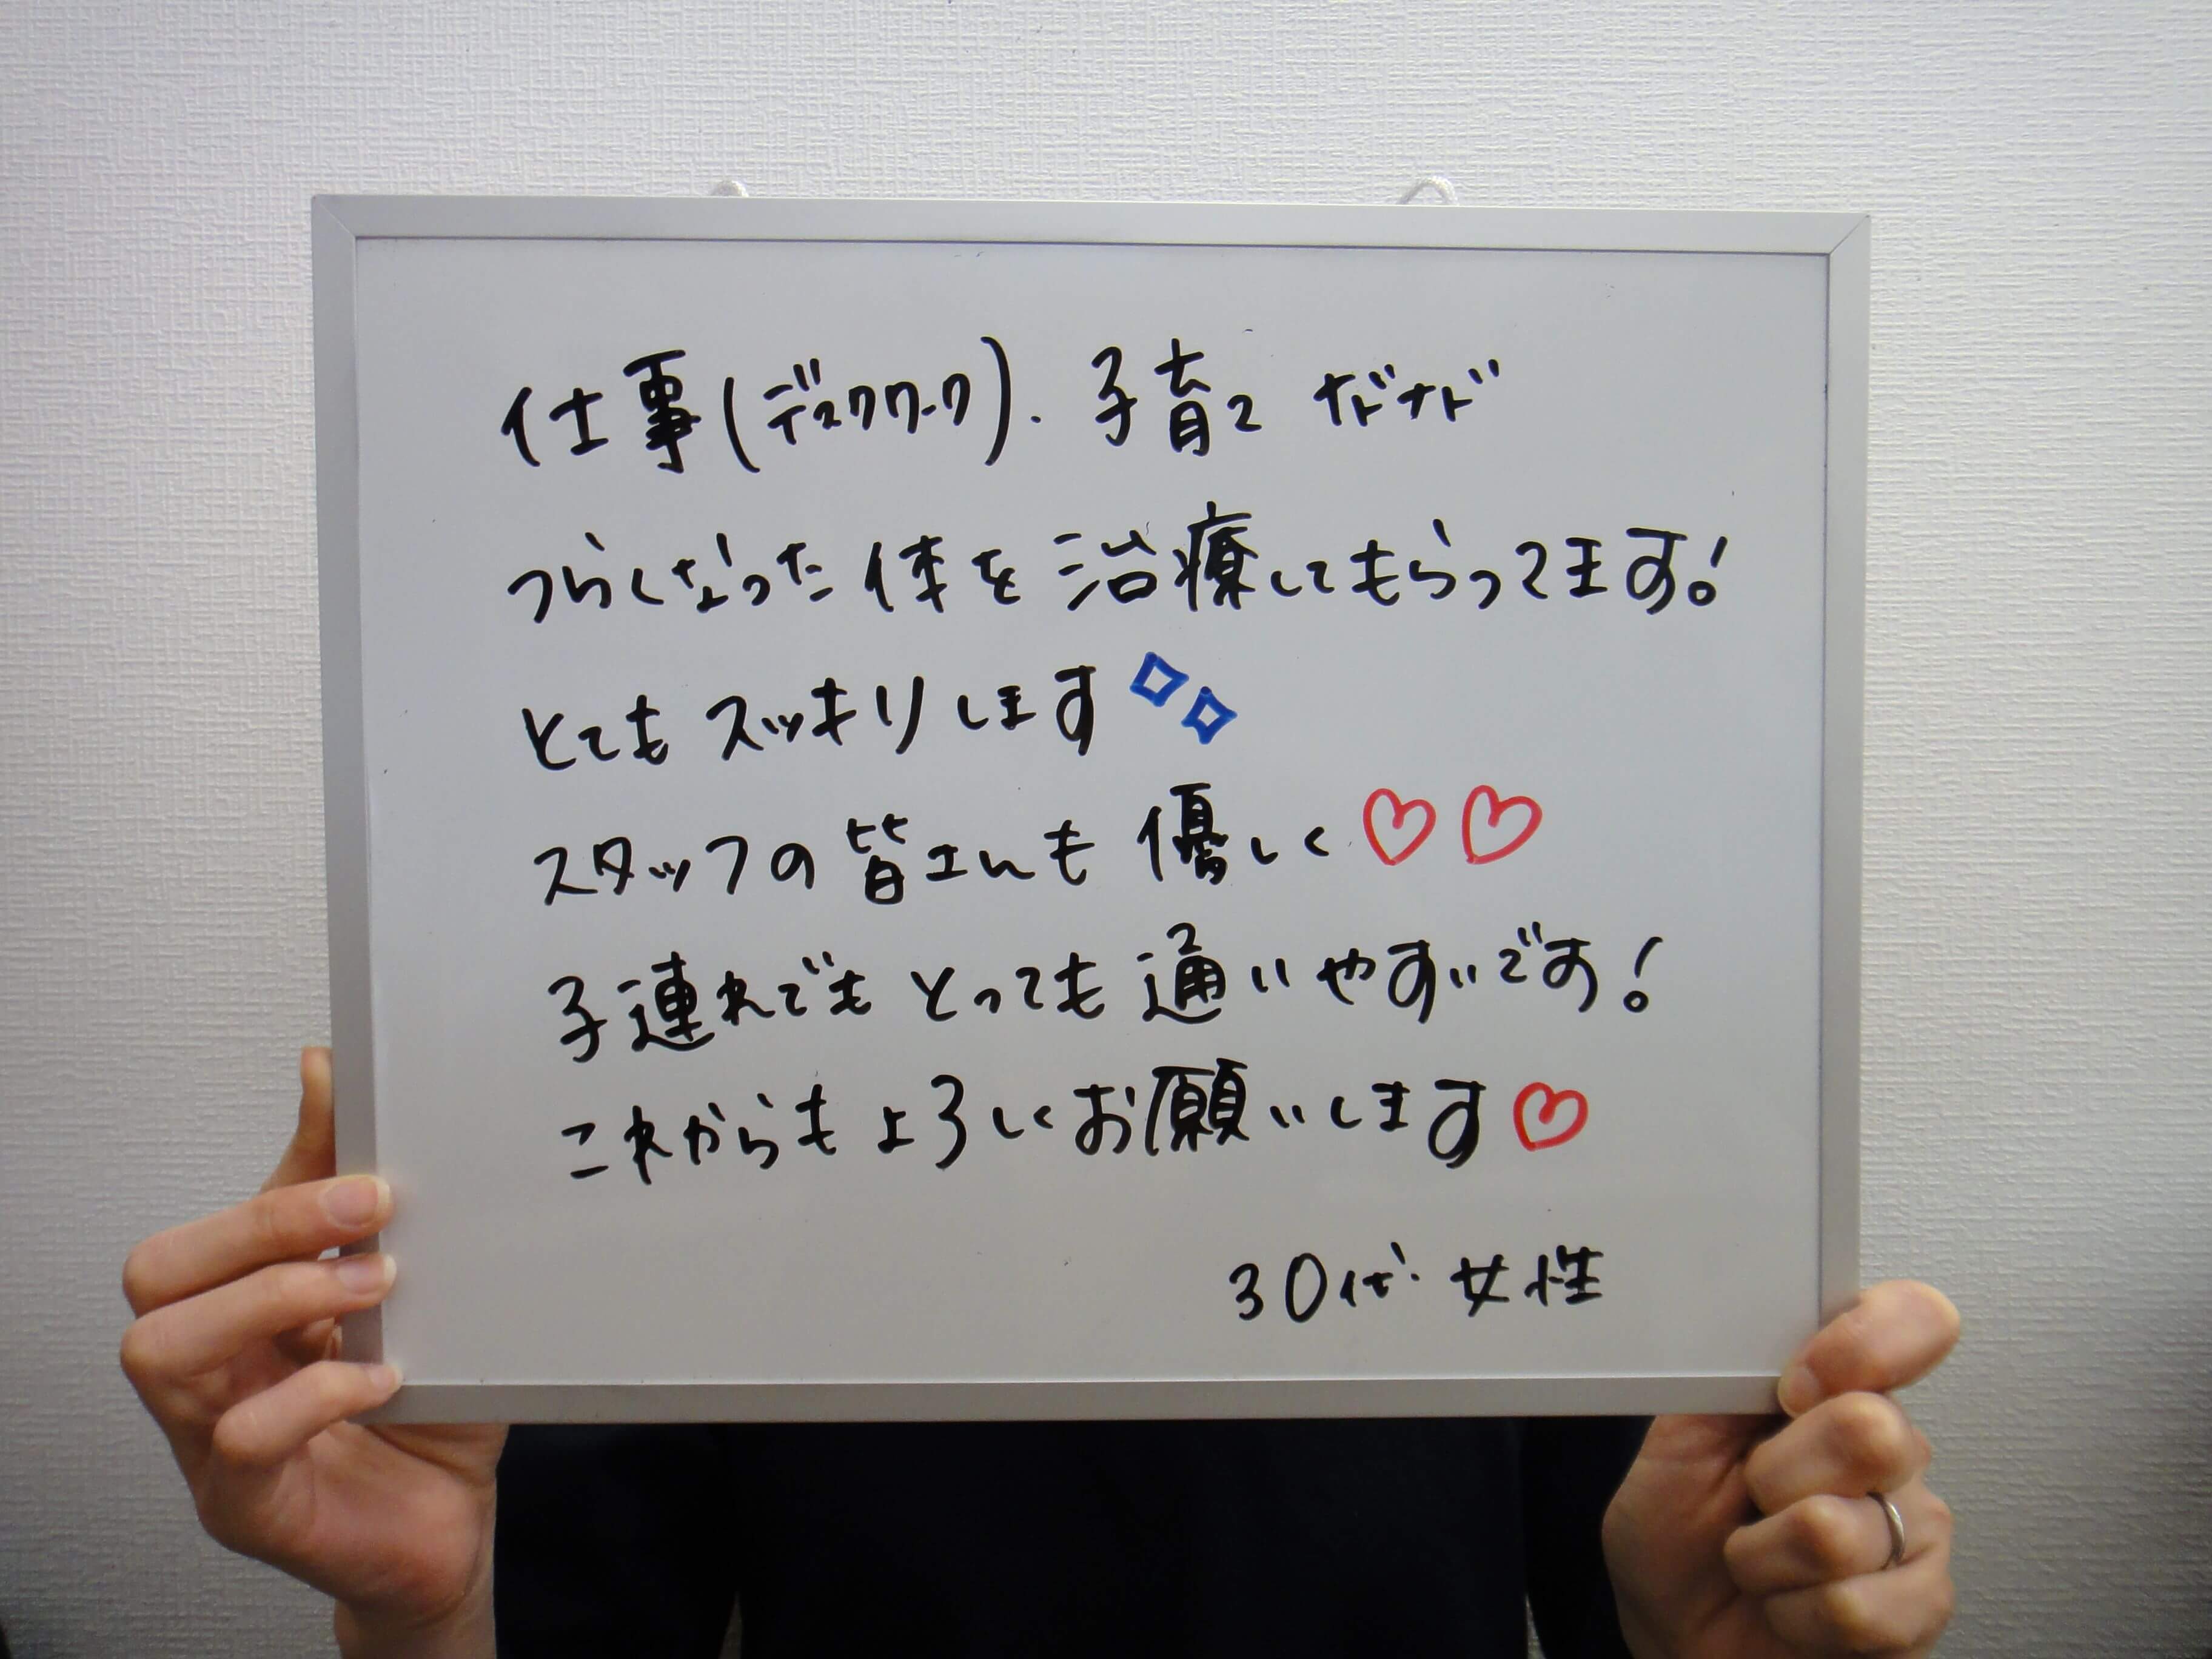 仕事(デスクワーク)・子育てナドナド
つらくなった体を治療してもらってます!
とてもスッキリします
スタッフの皆さんも優しく♡♡
子連れでもとっても通いやすいです!
これからもよろしくお願いします♡
30代・女性